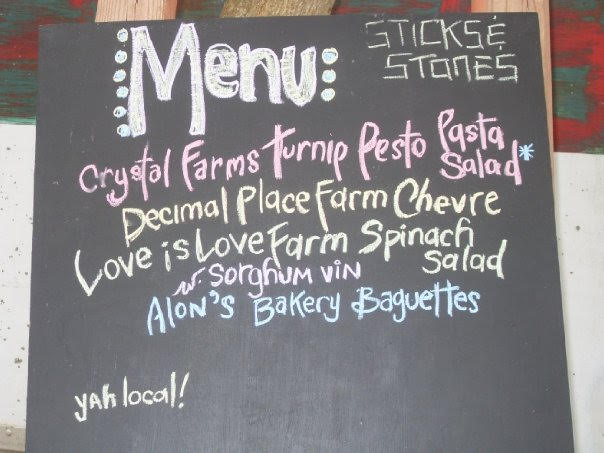 Menu
STICKS &
STONES
Crystal Farms Turnip Pesto Pasta
Salad*
Decimal Place Farm Chevre
Love is Love Farm Spinach
Salad
w. Sorghum Vin
Alon's Bakery Baguettes
yah local!